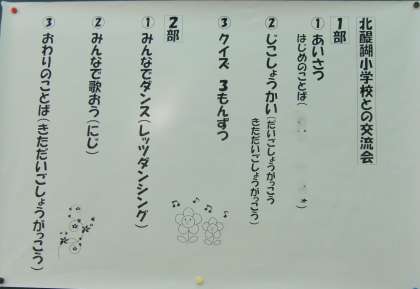 北醍醐小学校との交流会
1部
①あいさつ
はじめのことば(
②じこしょうかい(だいごしょうがっこう
きただいごしょうがっこう)
③クイズ 3もんずつ
2部
①みんなでダンス(レッツダンシング)
②みんなで歌おう(にじ)
③おわりのことば(きただいごしょうがっこう)